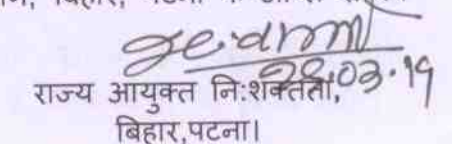 बिहार, पटना
28.03.19
राज्य आयुक्त नि:शक्तता,
बिहार,पटना।